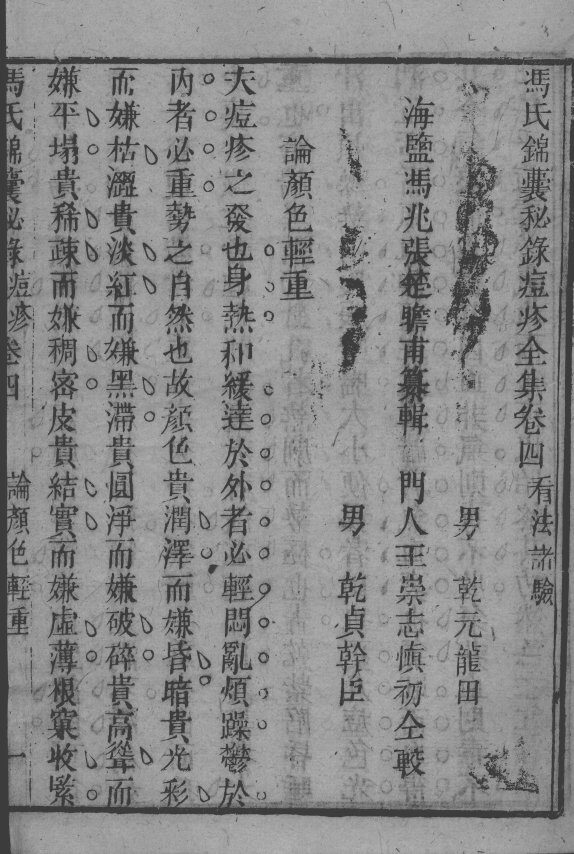 馮氏錦囊秘錄痘疹全集卷四 看法諸驗
男 乾元龍田
海鹽馮兆張楚瞻甫纂輯 門人王崇志慎初仝較
男 乾貞幹臣
論顏色輕重
夫痘疹之發也身熱和緩達於外者必輕悶亂煩躁鬱於
內者必重勢之自然也故顏色貴潤澤而嫌昏暗貴光彩
而嫌枯澀貴淡紅而嫌黑滯貴圓淨而嫌破碎貴高聳而
嫌平塌貴稀疎而嫌稠密皮貴結實而嫌虛薄根窠收緊
馮氏錦囊秘錄 痘疹卷四 論顏色輕重 一